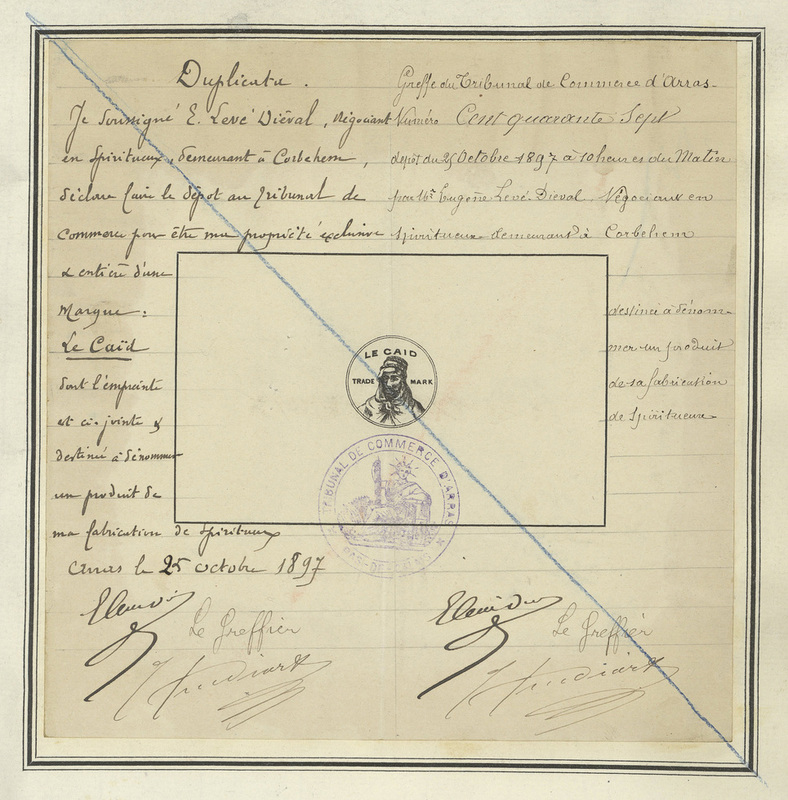 Duplicata.
Je Soussigné E. Levé Diéval, Négociant
en Spiritueux, demeurant à Corbehem,
déclare faire le dépôt au Tribunal de
Commerce pour être ma propriété exclusive
& entière d'une
Marque :
Le Caïd
dont l'empreinte
est ci-jointe &
destinée à dénommer
un produit de
ma fabrication de Spiritueux
Arras le 25 octobre 1897
Le Greffier
Greffe du Tribunal de Commerce d'Arras
Numéro Cent quarante Sept
dépôt du 25 Octobre 1897 à 10 heures du Matin
par Mr Eugène Levé-Diéval, Négociant en
Spiritueux demeurant à Corbehem
destinée à dénom-
mer un produit
de sa fabrication
de Spiritueux
Le Greffier
LE CAID
TRADE MARK
TRIBUNAL DE COMMERCE D'ARRAS